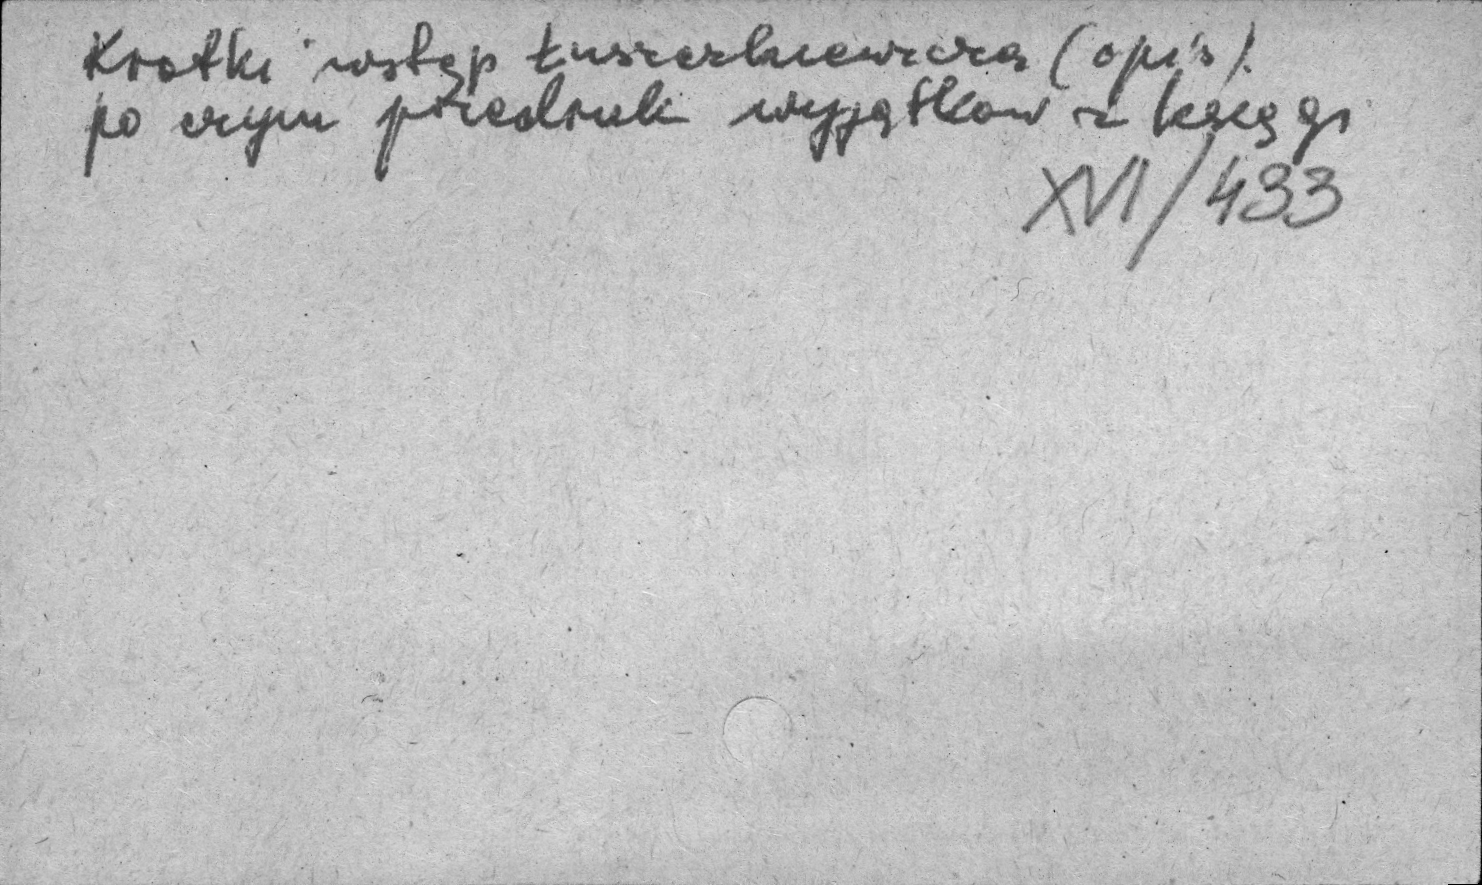 Krótki wstęp Łuszczkiewicza (opis).
po czym przedruk wyjątków z księgi
XVI/433